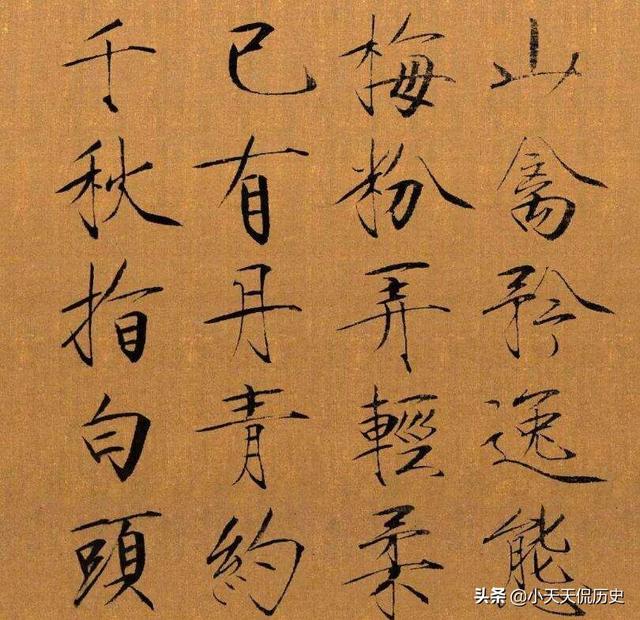 山禽矜逸態
梅粉弄輕柔
已有丹青約
千秋指白頭
头条 @小天天侃历史